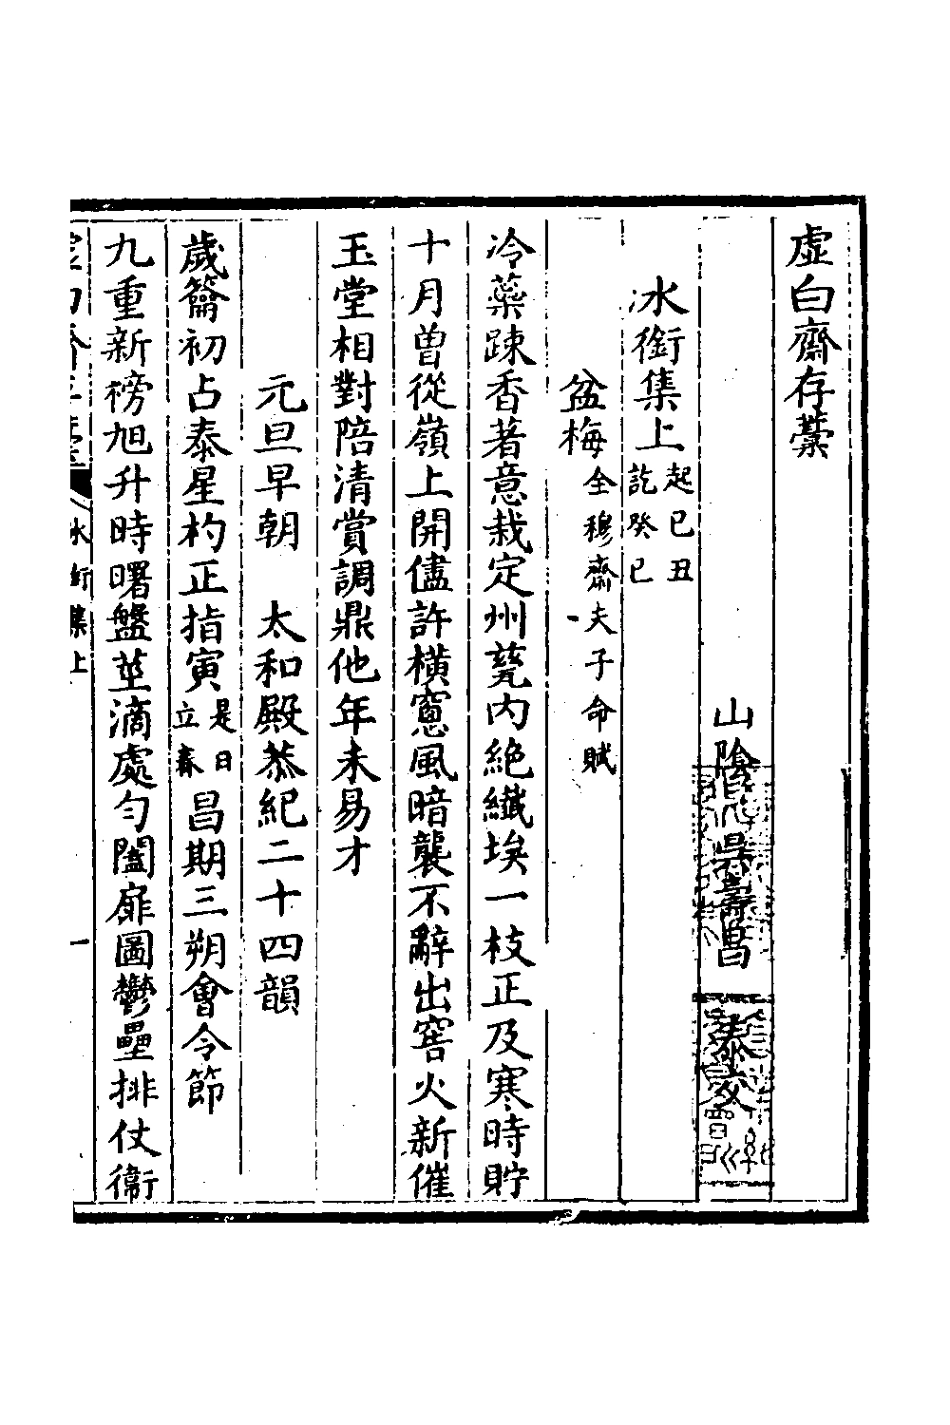 虛白齋存藳
山陰 吳壽昌 泰交
冰銜集上起己丑訖癸巳
盆梅仝穆齋夫子命賦
冷蘂踈香著意栽定州甆内絶纎埃一枝正及寒時貯
十月曾從嶺上開儘許橫窻風暗襲不辭出窖火新催
玉堂相對陪清賞調鼎他年未易才
元旦早朝 太和殿恭紀二十四韻
歲籥初占泰星杓正指寅是日立春昌期三朔會令節
九重新榜旭升時曙盤莖滴處勻闔扉圖鬱壘排仗衞
冰銜集上
一